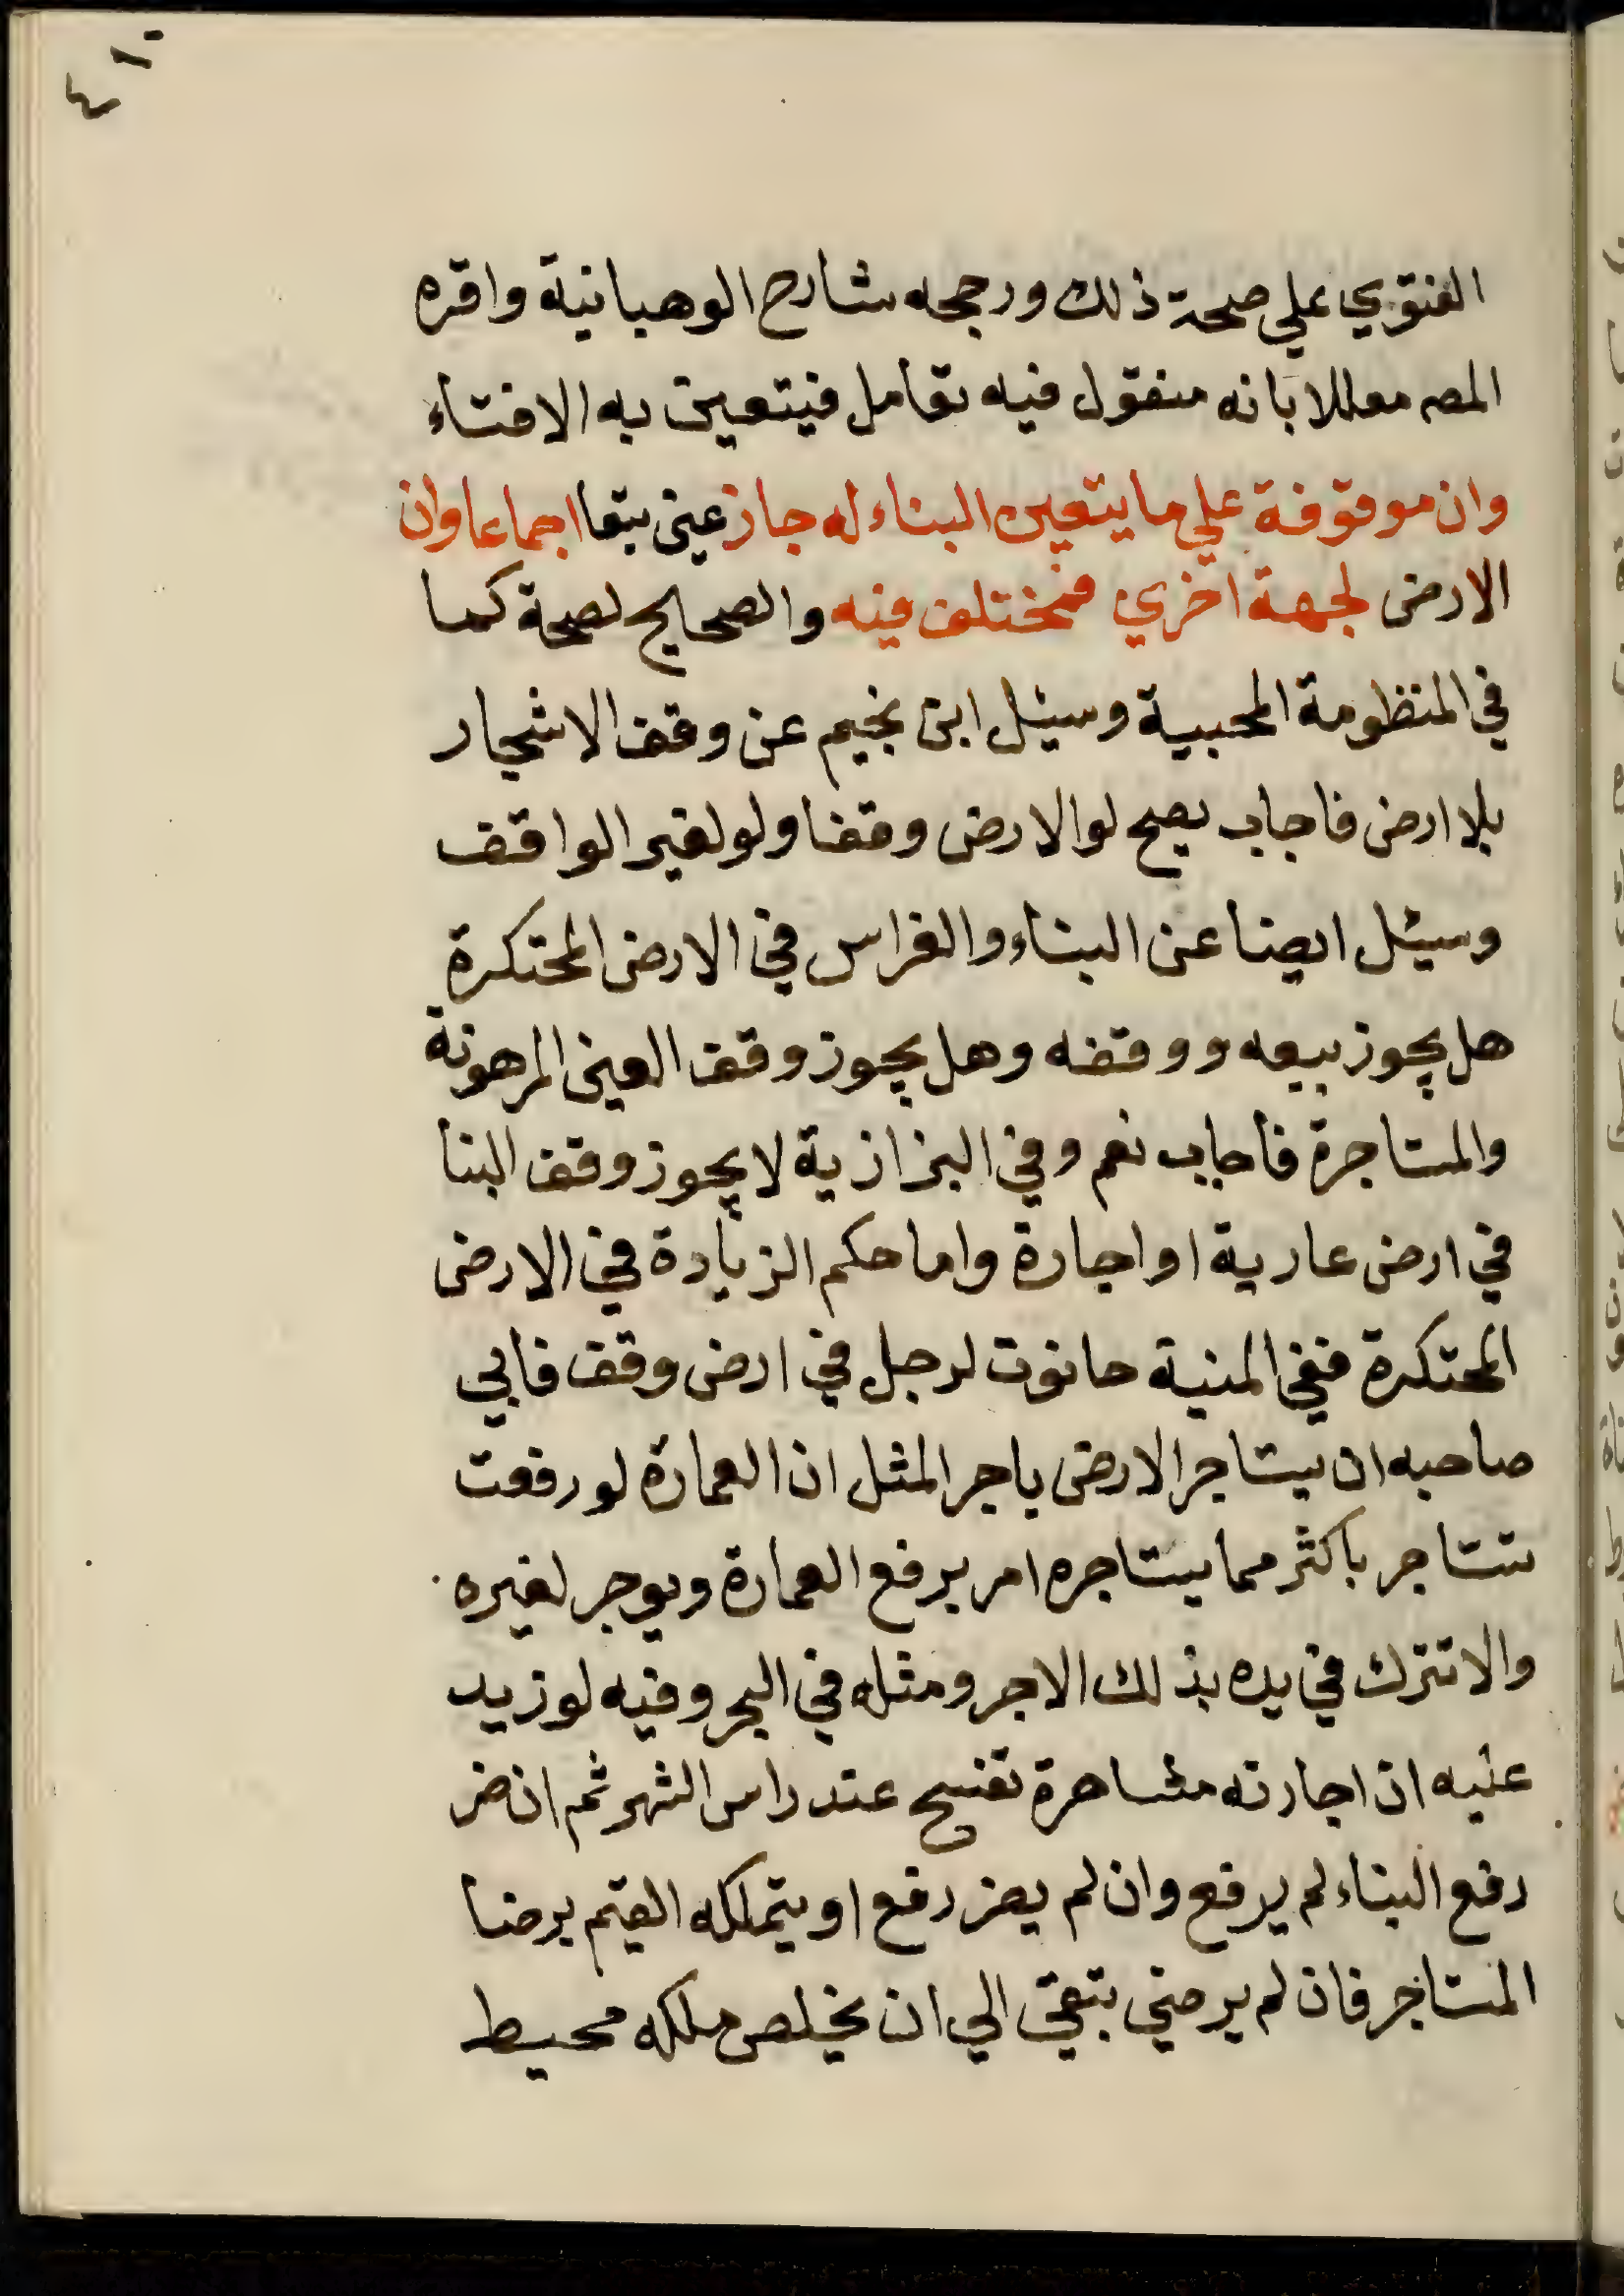 ٤١٠
الفتوي علي صحة ذلك ورجحه شارح الوهبانية واقره
المصه معللا بانه منقول فيه تعامل فيتعين به الافتاء
وان موقوفة علي ما يتعين البناء له جاز عين بتعا اجماعا وان
الارض لجهة اخري فمختلف فيه والصحايح لصحة كما
في المنظومة المحبية وسيئل ابن نجيم عن وقف الاشجار
بلا ارض فاجاب يصح لو الارض وقفا ولو لغير الواقف
وسيئل ايضا عن البناء والغراس في الارض المحتكرة
هل يجوز بيعه ووقفه وهل يجوز وقف العين المرهونة
والمستاجرة فاجاب نعم وفي البزازية لا يجوز وقف البنا
في ارض عارية او اجارة واما حكم الزيادة في الارض
المحتكرة ففي المنية حانوت لرجل في ارض وقف فابي
صاحبه ان يستاجر الارض باجر المثل ان العمارة لو رفعت
تستاجر باكثر مما يستاجره امر برفع العمارة ويوجر لغيره
والا تترك في يده بذلك الاجر ومثله في البحر وفيه لو زيد
عليه ان اجارته مشاهرة تفسح عند راس الشهر ثم ان ضر
رفع البناء لم يرفع وان لم يضر رفع او يتملكه القيم برضا
المستاجر فان لم يرضي بتقي الي ان يخلص ملكه محيط